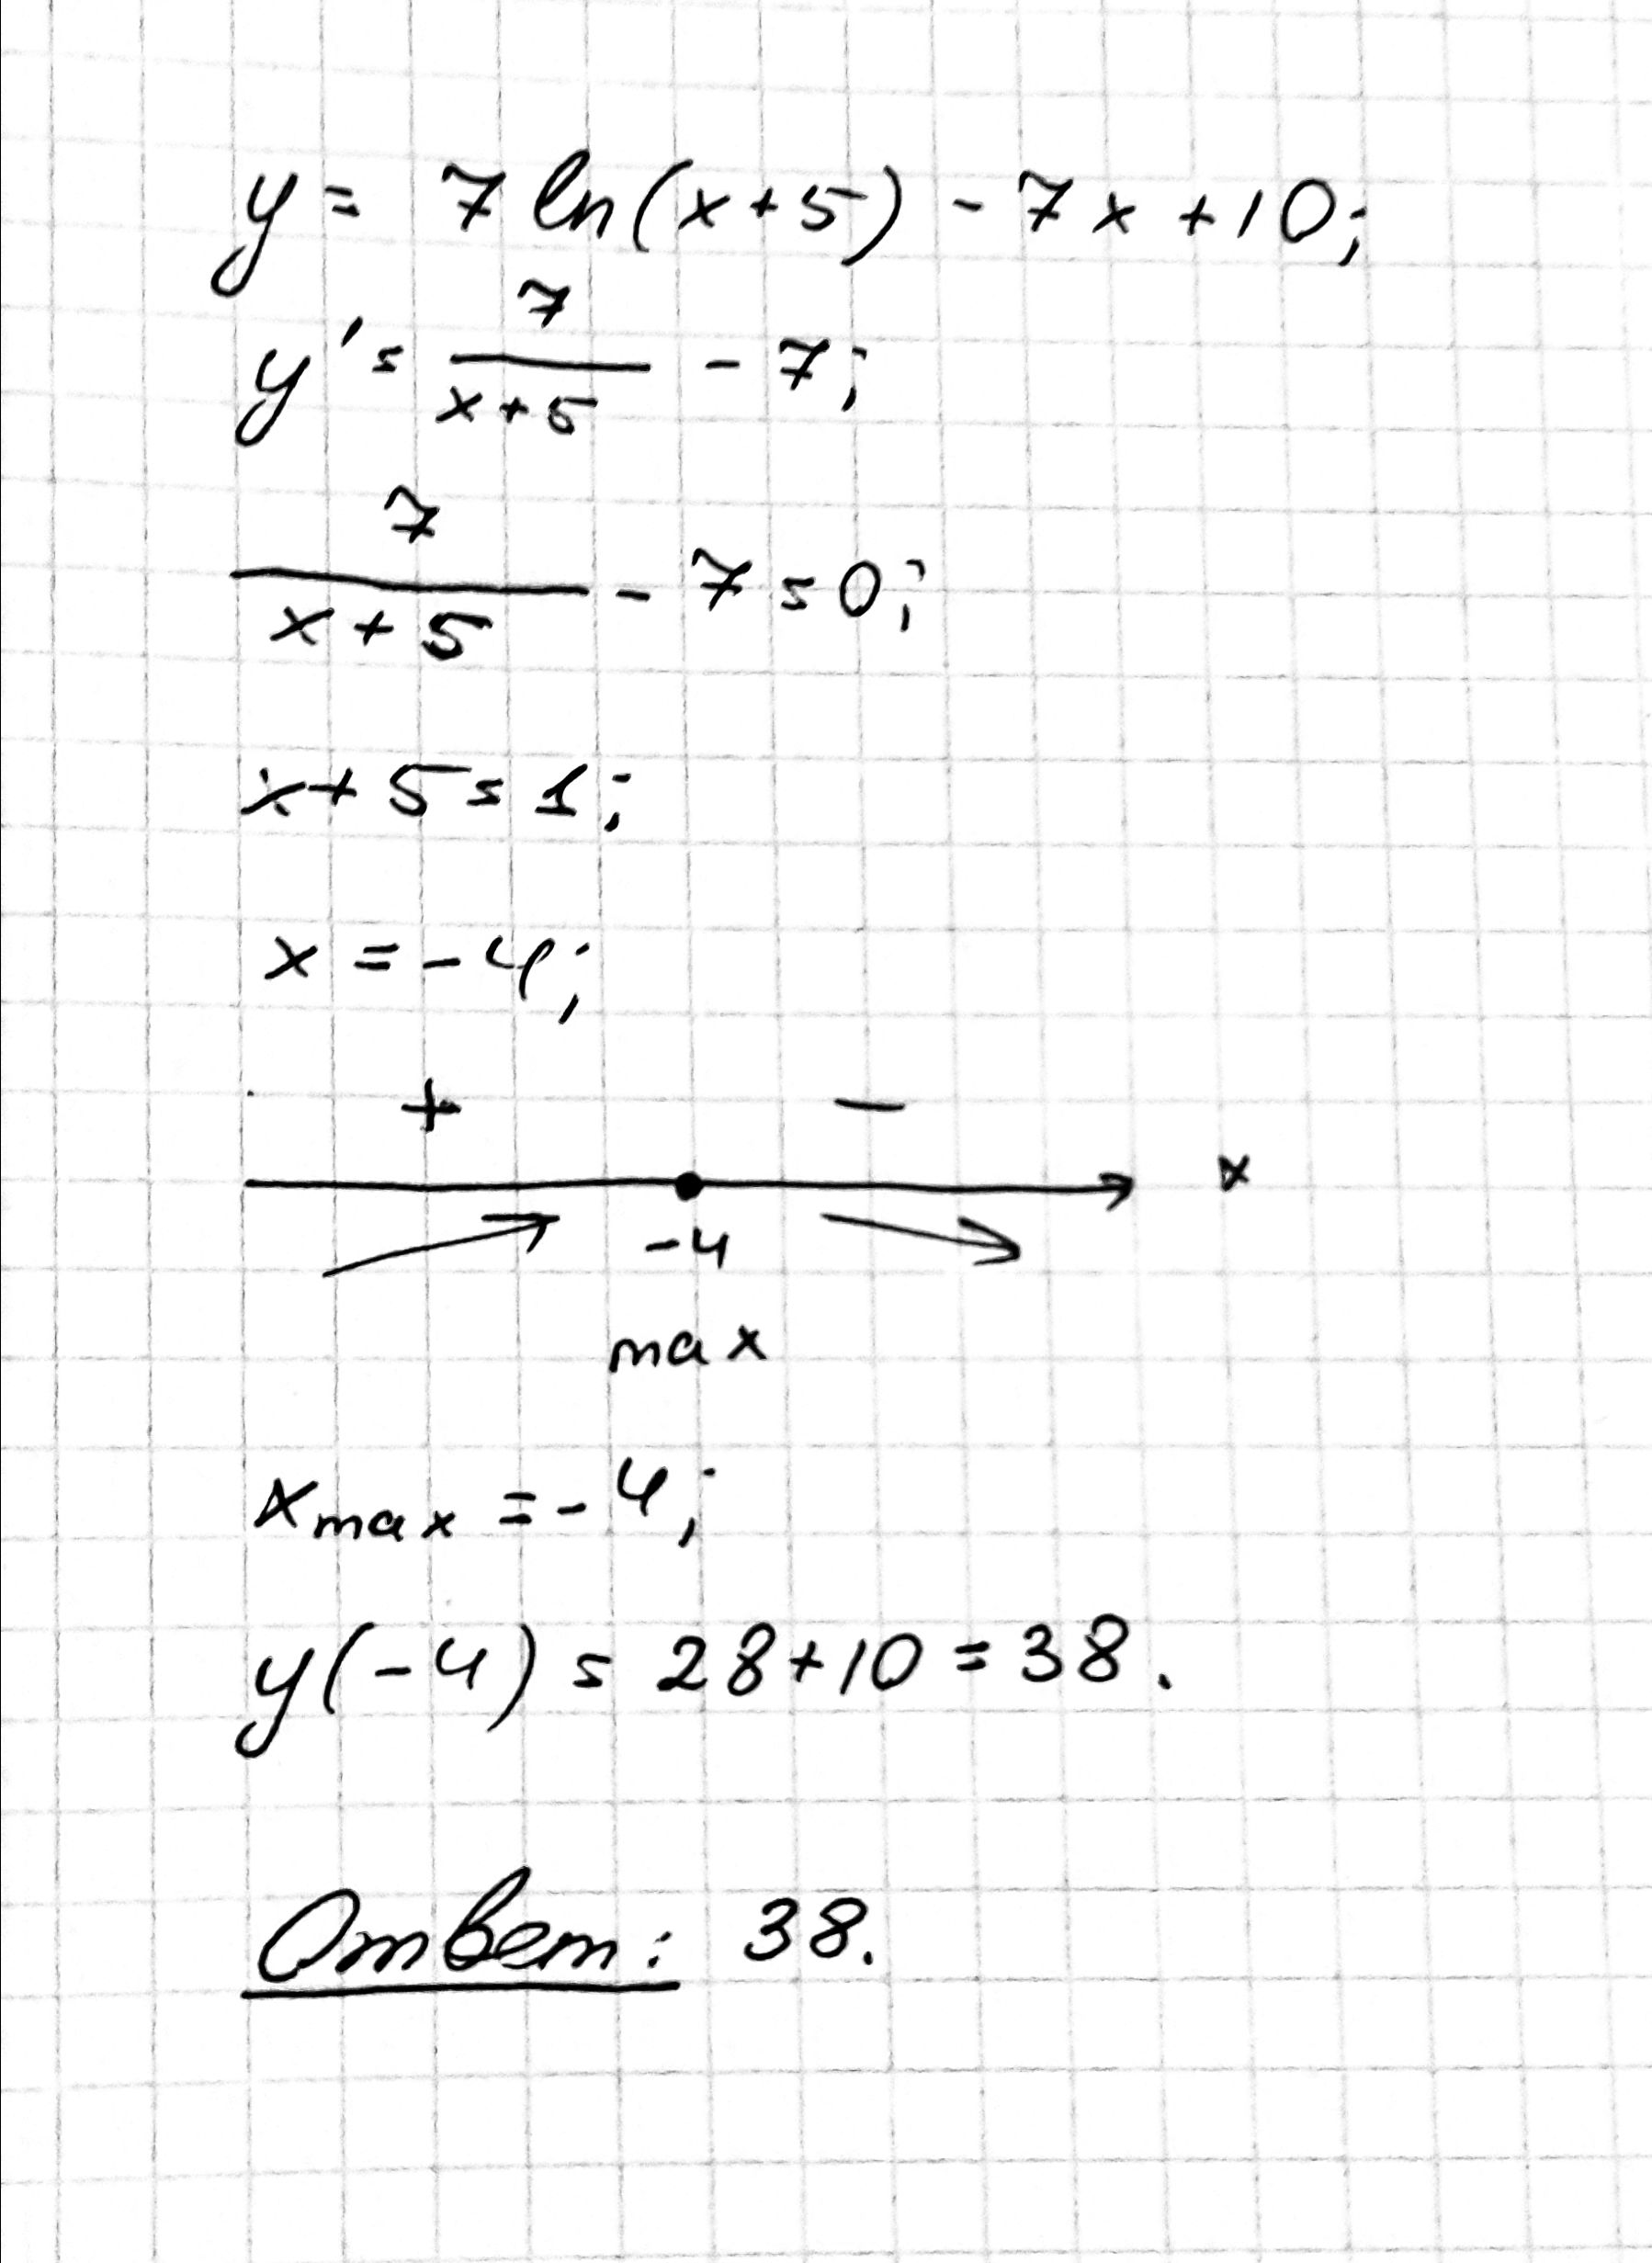 y = 7 ln(x+5) - 7x + 10;
y' = 7/(x+5) - 7;
7/(x+5) - 7 = 0;
x + 5 = 1;
x = -4;
+ −
x
-4
max
xmax = -4;
y(-4) = 28+10 = 38.
Ответ: 38.